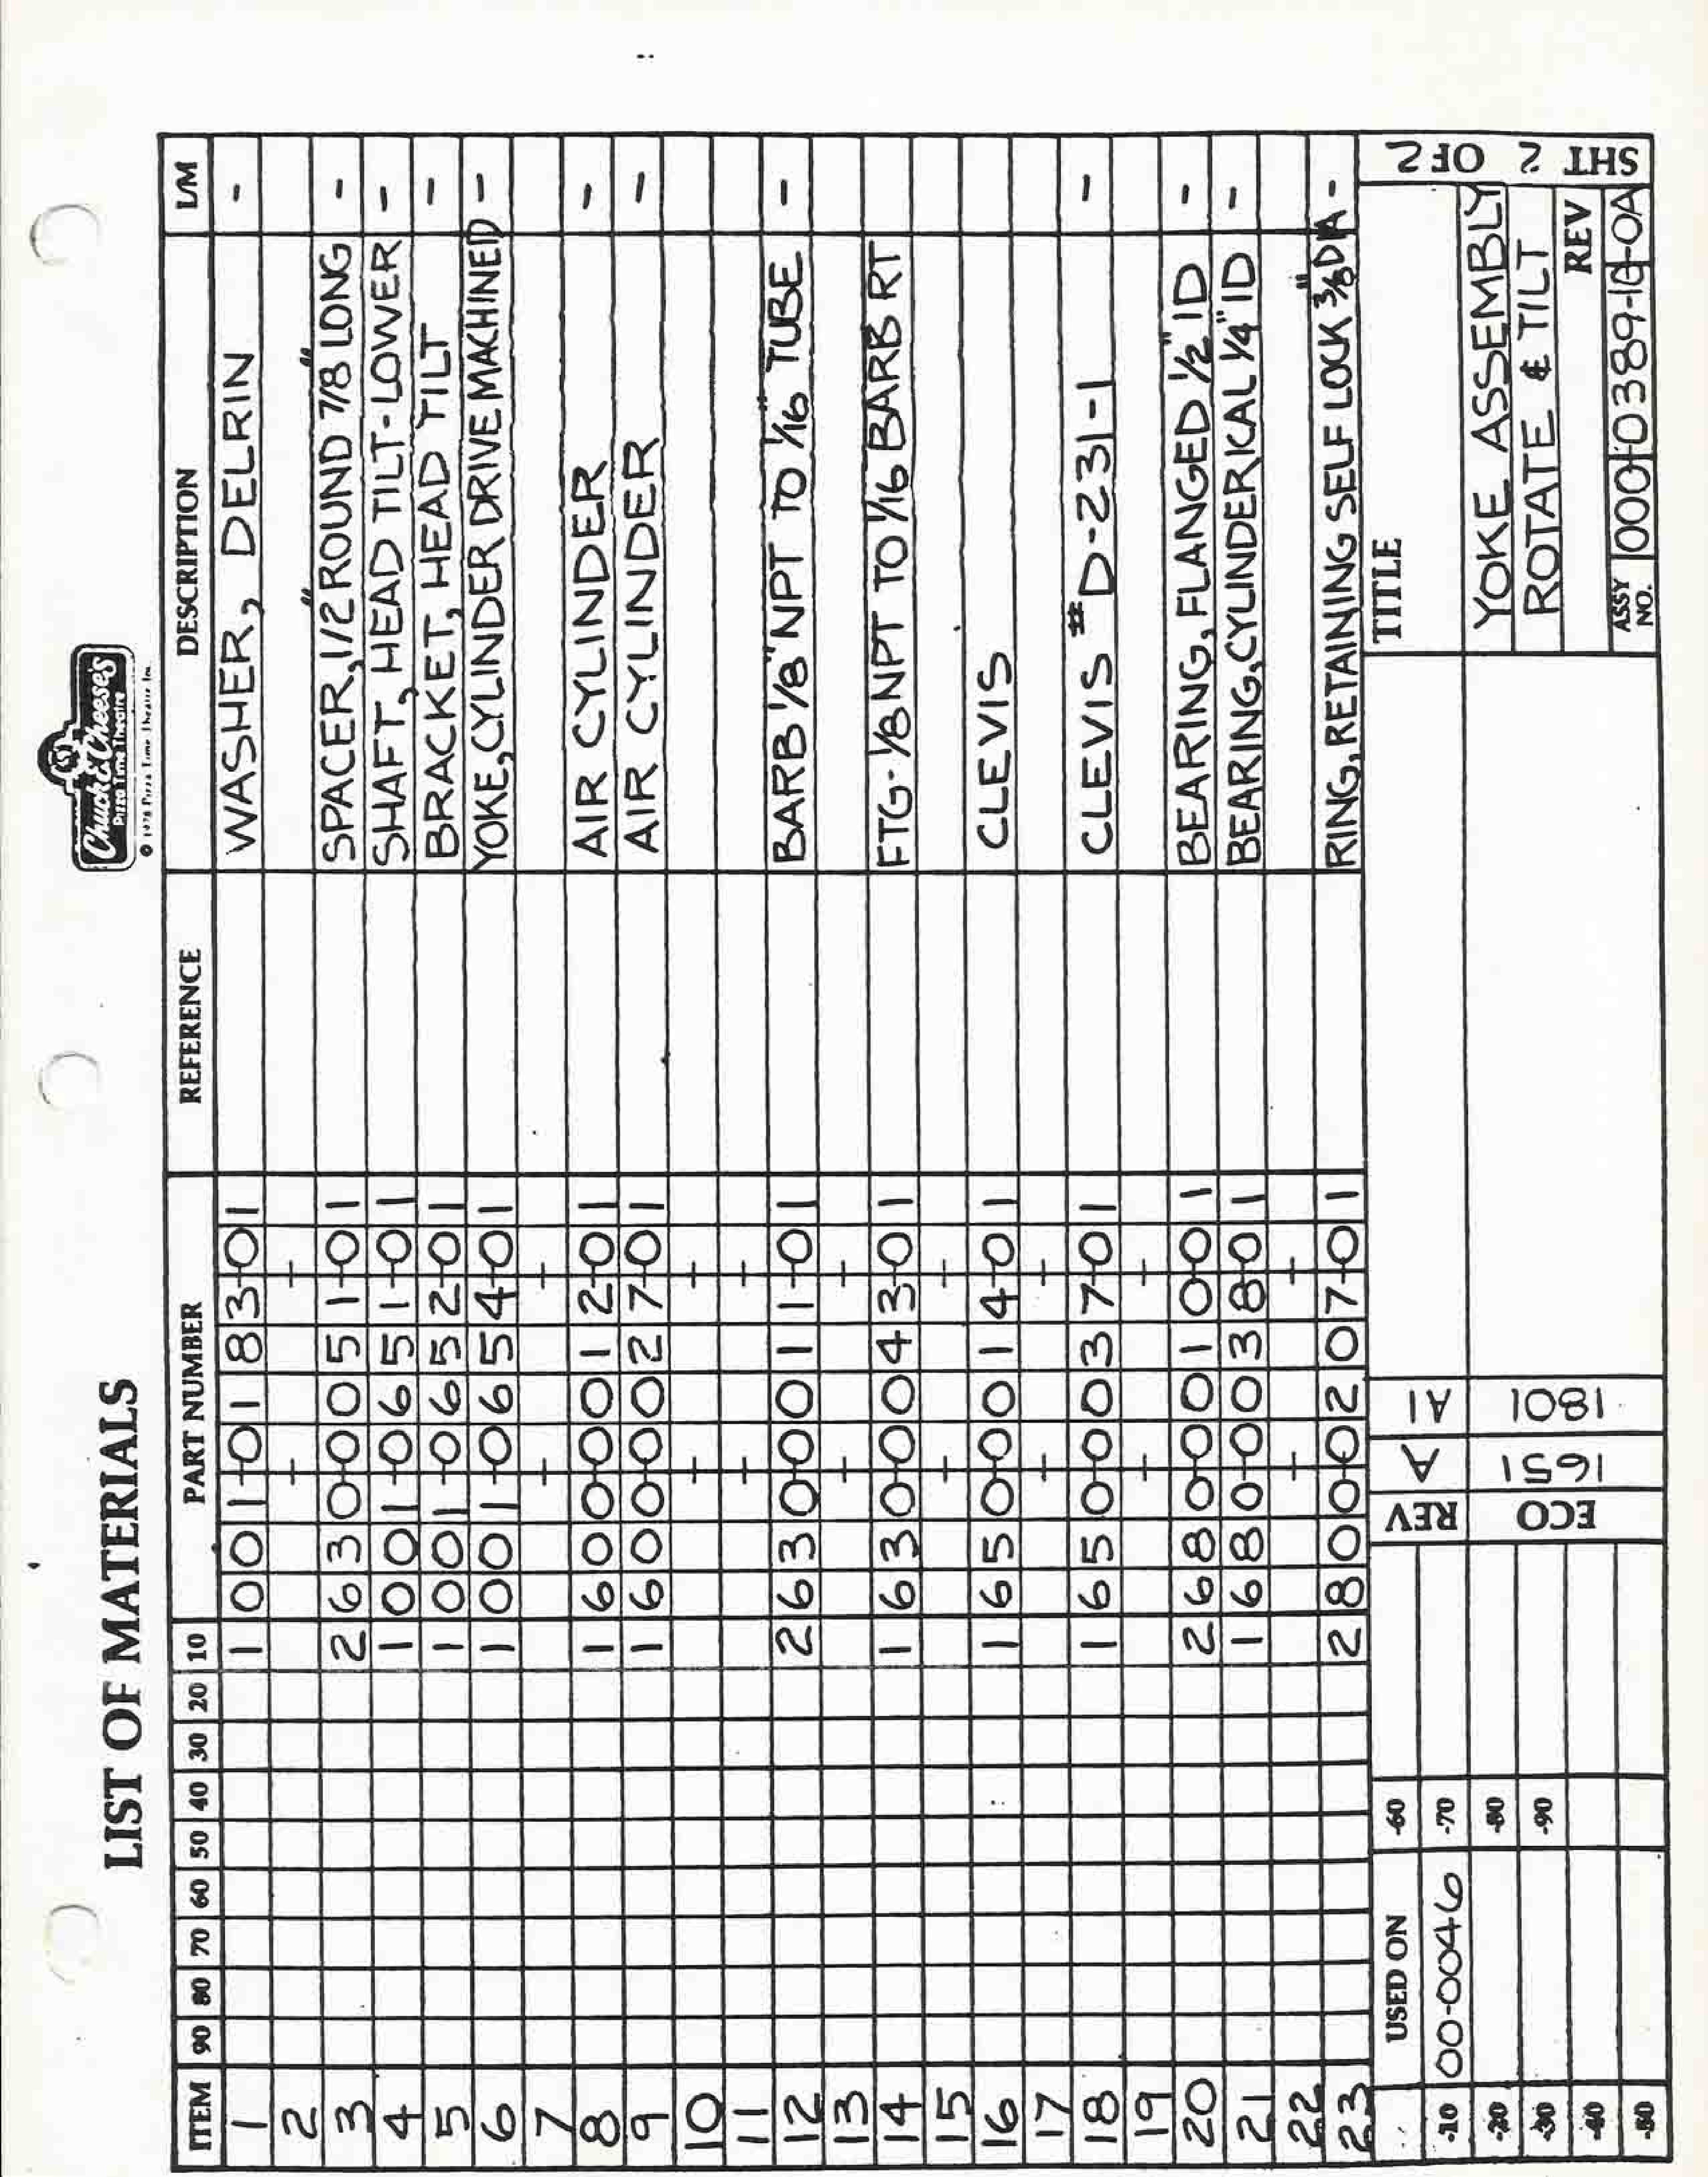 Chuck E. Cheese's
Pizza Time Theatre
LIST OF MATERIALS
ITEM 90 80 70 60 50 40 30 20 10 PART NUMBER REFERENCE DESCRIPTION L/M
1 1 001-0183-01 WASHER, DELRIN -
2
3 2 630-0051-01 SPACER, 1/2" ROUND 7/8" LONG -
4 1 001-0651-01 SHAFT, HEAD TILT-LOWER -
5 1 001-0652-01 BRACKET, HEAD TILT -
6 1 001-0654-01 YOKE, CYLINDER DRIVE MACHINED -
7
8 1 600-0012-01 AIR CYLINDER -
9 1 600-0027-01 AIR CYLINDER -
10
11
12 2 630-0011-01 BARB 1/8" NPT TO 1/16" TUBE -
13
14 1 630-0043-01 FTG-1/8 NPT TO 1/16 BARB RT
15
16 1 650-0014-01 CLEVIS
17
18 1 650-0037-01 CLEVIS #D-231-1 -
19
20 2 680-0010-01 BEARING, FLANGED 1/2" ID -
21 1 680-0038-01 BEARING, CYLINDERICAL 1/4" ID -
22
23 2 800-0207-01 RING, RETAINING SELF LOCK 3/8" DIA -
USED ON -60 REV A A1 TITLE
-10 00-0046 -70 ECO 1651 1801 YOKE ASSEMBLY
-20 -80 ROTATE & TILT
-30 -90 REV
-40
-50 ASSY NO. 000-0389-10-0A
SHT 2 OF 2